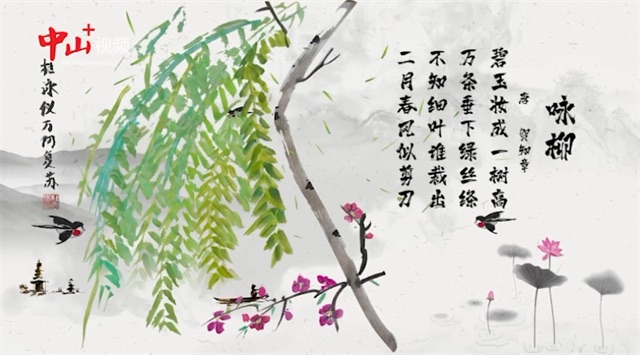 中山+视频
咏柳
唐 贺知章
碧玉妆成一树高
万条垂下绿丝绦
不知细叶谁裁出
二月春风似剪刀